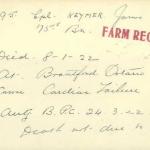 95. Cpl. KEYMER. James
175th Bn. FARM REC
Died. 8-1-22
At. Brantford Ontario
Cause Cardiac Failure
Auth B.P.C. 24.3.22
Death not due to